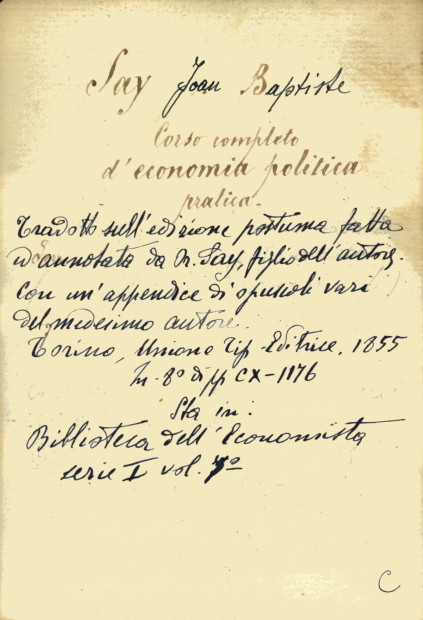 Say Jean Baptiste
Corso completo
d'economia politica
pratica.
Tradotto sull'edizione postuma fatta
ed annotata da H. Say, figlio dell'autore.
Con un'appendice di opuscoli vari
del medesimo autore.
Torino, Unione Tip. Editrice, 1855
In 8° di pp CX-1176
Sta in:
Biblioteca dell'Economista
serie I vol. 7°
C